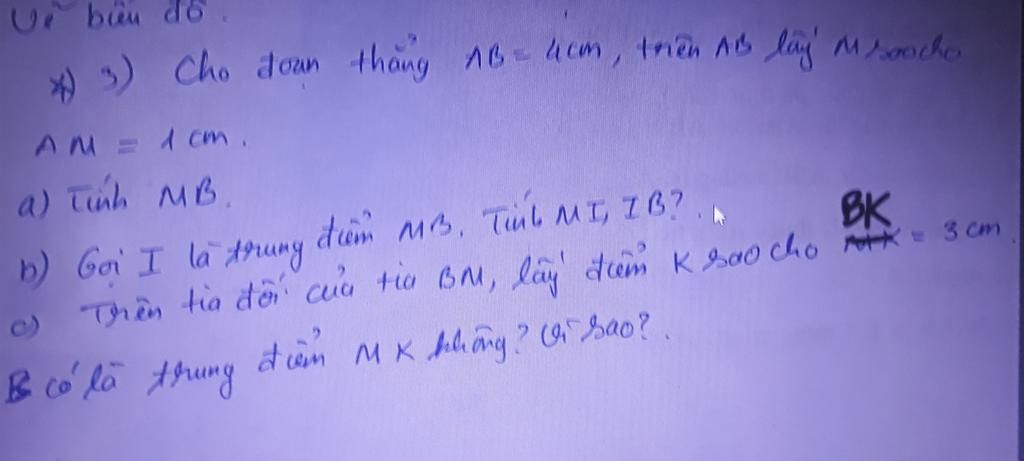 Vẽ biểu đồ.
*) 3) Cho đoạn thẳng AB = 4cm, trên AB lấy M sao cho
AM = 1 cm.
a) Tính MB.
b) Gọi I là trung điểm MB. Tính MI, IB?.
c) Trên tia đối của tia BM, lấy điểm K sao cho BK = 3 cm.
B có là trung điểm MK không? Vì sao?.